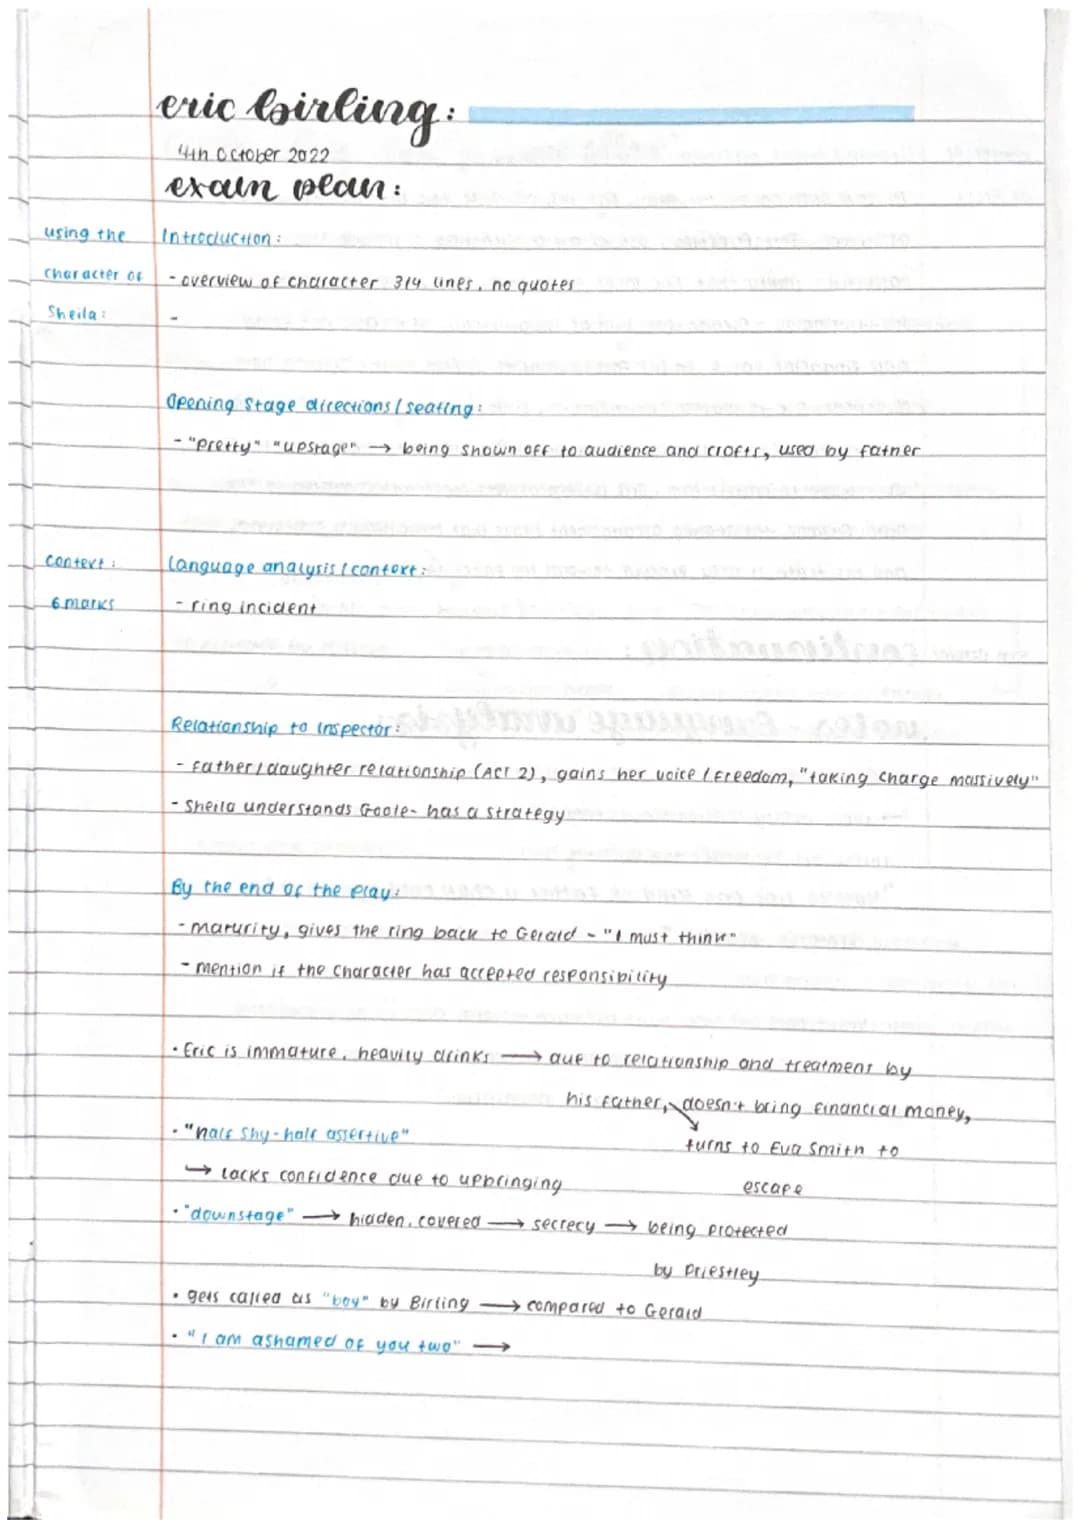 eric birling:
4th October 2022
exam plan:
using the
character of
Sheila:
Introduction:
- overview of character 3/4 lines, no quotes
-
Opening Stage directions / seating:
- "pretty" "upstage" → being shown off to audience and crofts, used by father
context:
6 marks
Language analysis / context:
- ring incident
Relationship to Inspector:
- father / daughter relationship (ACT 2), gains her voice / freedom, "taking charge massively"
- Sheila understands Goole - has a strategy
By the end of the play:
- maturity, gives the ring back to Gerald - "I must think"
- mention if the character has accepted responsibility
• Eric is immature, heavily drinks → due to relationship and treatment by
his father, doesn't bring financial money,
turns to Eva Smith to
escape
• "half shy-half assertive"
→ lacks confidence due to upbringing
• "downstage" → hidden, covered → secrecy → being protected
by Priestley
• gets called as "boy" by Birling → compared to Gerald
• "I am ashamed of you two" →